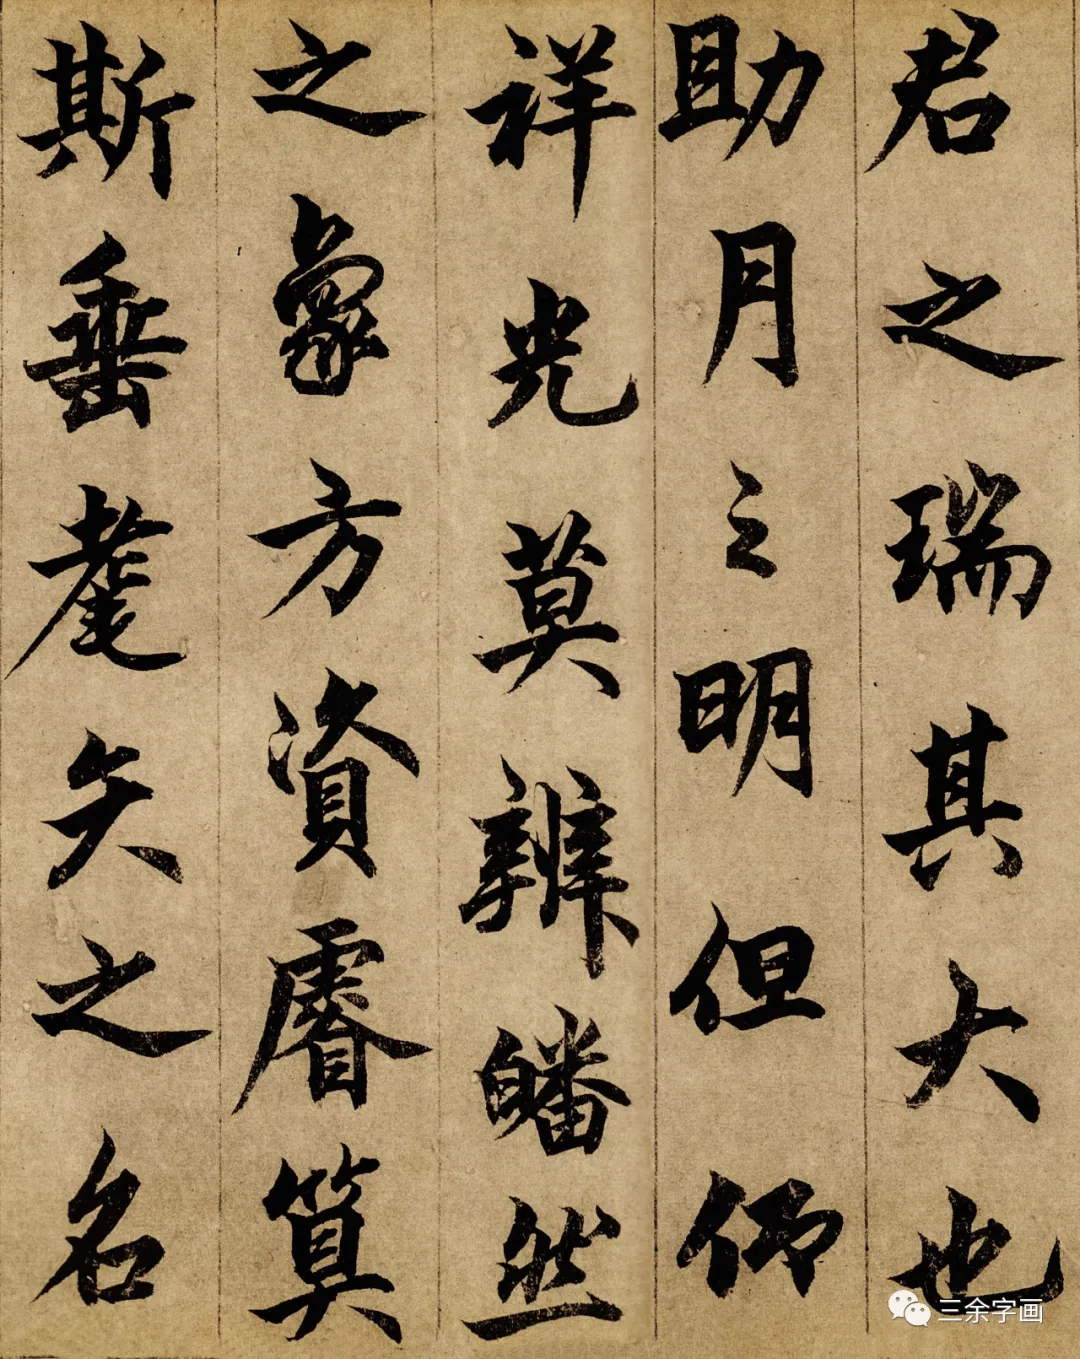 君之瑞其大也
助月之明但仰
祥光莫辨皤然
之象方資睿算
斯垂耄矣之名
三余字画